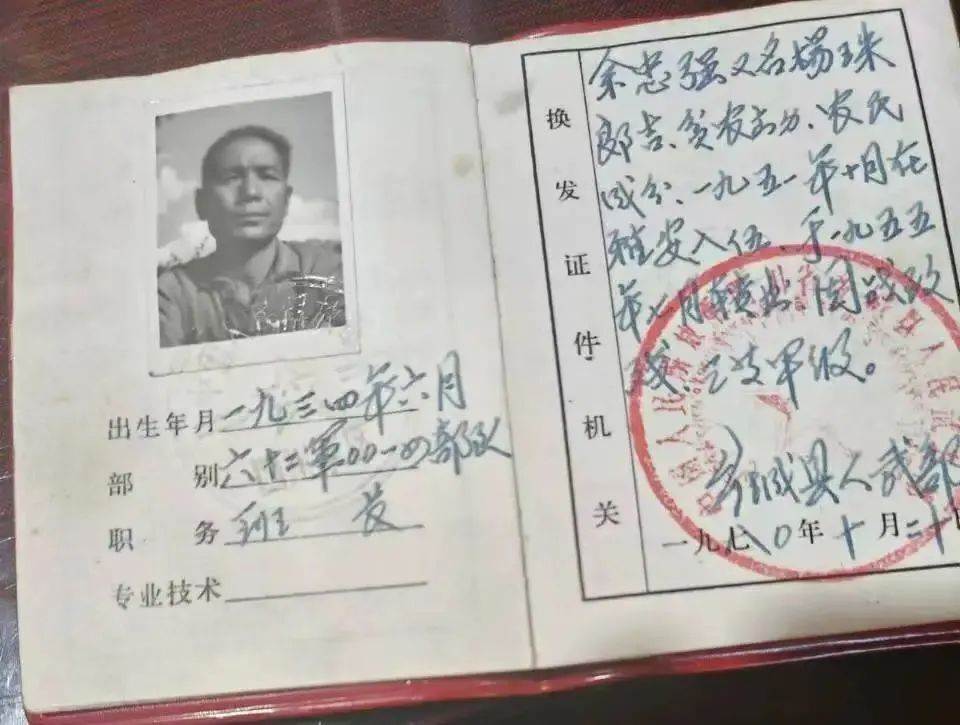 出生年月 一九三四年六月
部别 六十二軍00一四部队
职务 班长
专业技术
换发证件机关
余忠强又名楊珠
郎吉、贫农出身、农民
成分、一九五一年十月在
雅安入伍、于一九五五
年七月转业,因战致
残、三等甲级。
乡城县人武部
一九八0年十月二十日